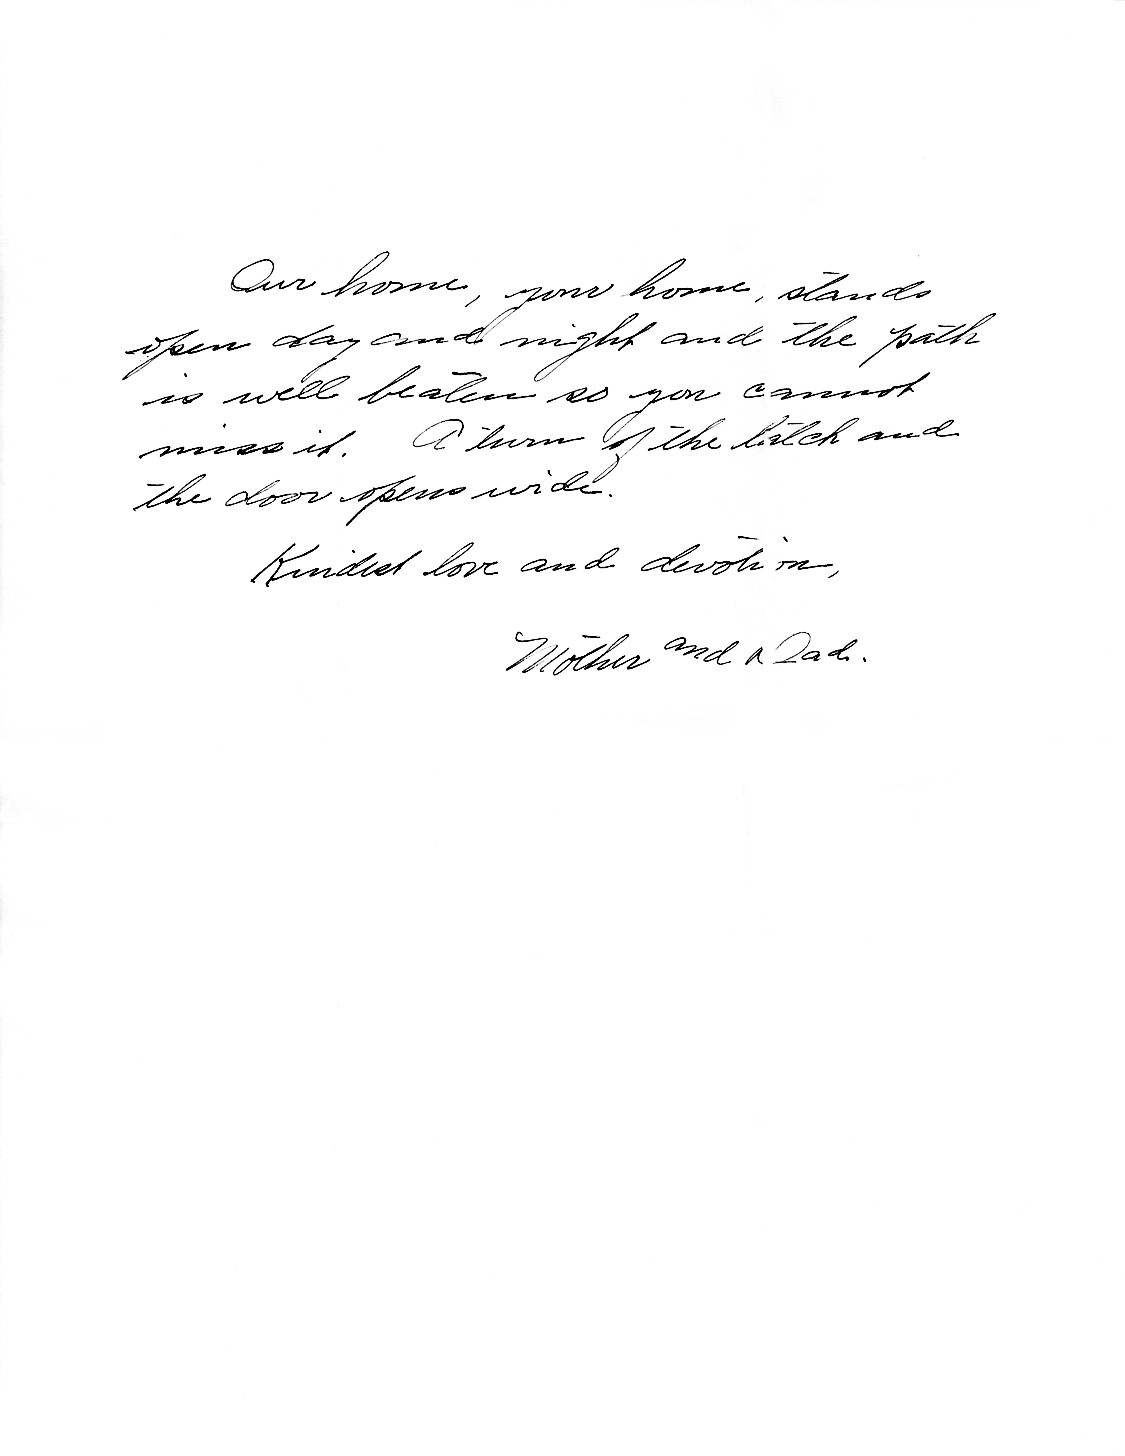 Our home, your home, stands
open day and night and the path
is well beaten so you cannot
miss it. A turn of the latch and
the door opens wide.
Kindest love and devotion,
Mother and Dad.